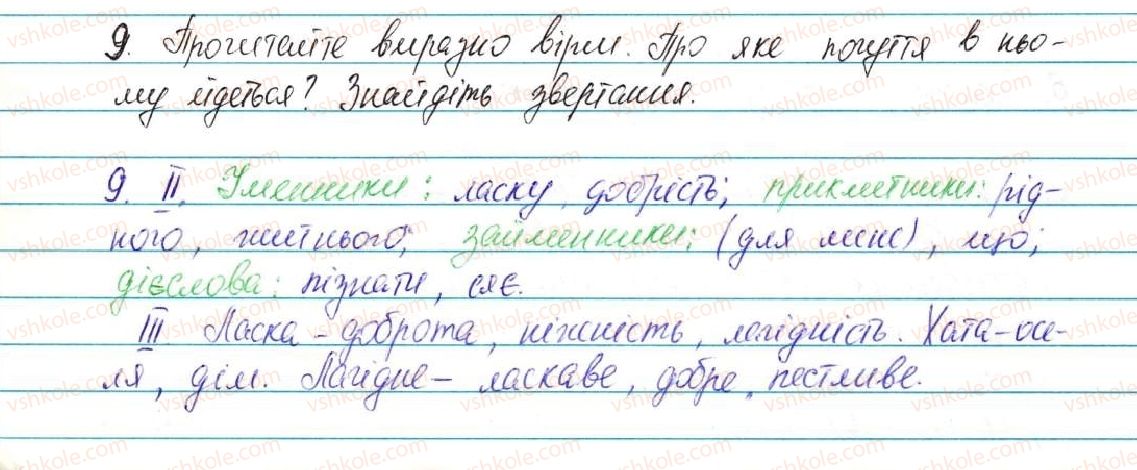 9. Прочитайте виразно вірш. Про яке почуття в ньо-
му йдеться? Знайдіть звертання.
9. II. Іменники: ласку, добрість; прикметники: рід-
ного, житнього; займенники: (для мене), що;
дієслова: пізнати, сяє.
III Ласка - доброта, ніжність, лагідність. Хата - осе-
ля, дім. Лагідне - ласкаве, добре, пестливе.